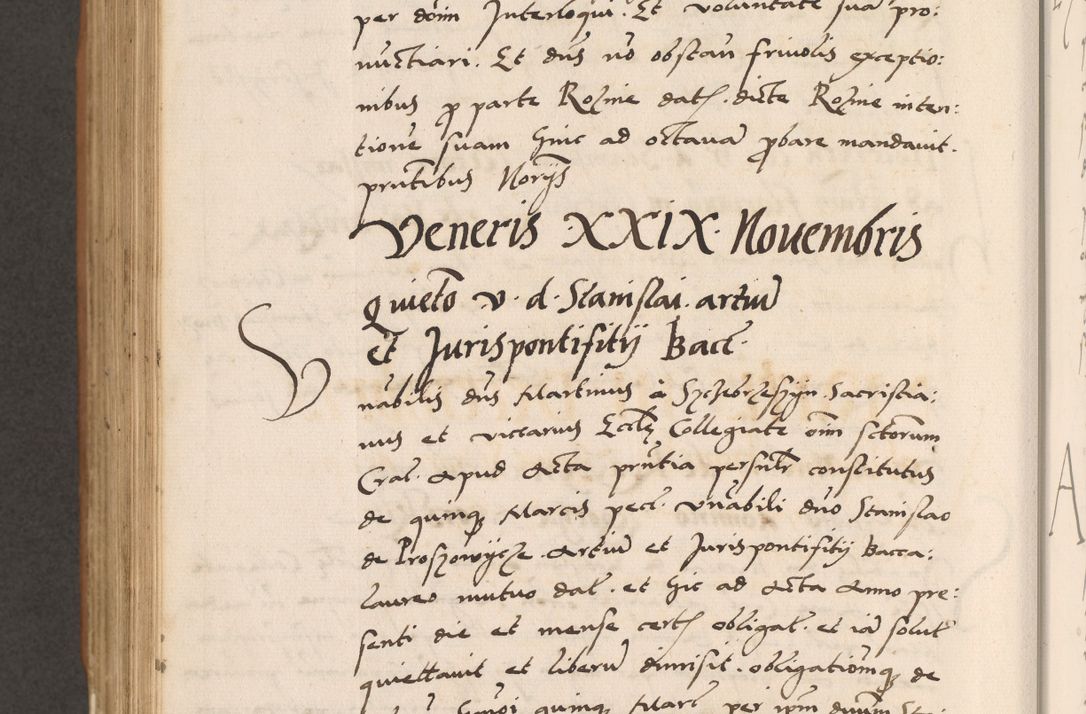 per dom Interloqui. Et voluntate sua pro:
nuctiari. Et dns no obstan frivolis exceptio:
nibus p parte Rozine dat. dicte Rozine inten:
tione suam hinc ad octava pbare mandavit.
pntibus Norijs
Veneris XXIX Novembris
Quieto v. d. Stanislai. artiu
et Jurispontifitij Bacc.
Vnabilis dns Martinus à Szczebrzeszyn Sacristia:
nus et vicarius Eccle Collegiate oim sctorum
Crac. apud Acta pntia personalr constitutus
de quinq Marcis pec. vnabili dno Stanislao
de Proszowycze Artiu et Jurispontifitij Bacca:
laureo mutuo dat. et hic ad Acta Anno pre:
senti die et mense cert obligat. et ia solut
quiettavit et liberu dimisit. obligationemq de
quinq Marc per ipm